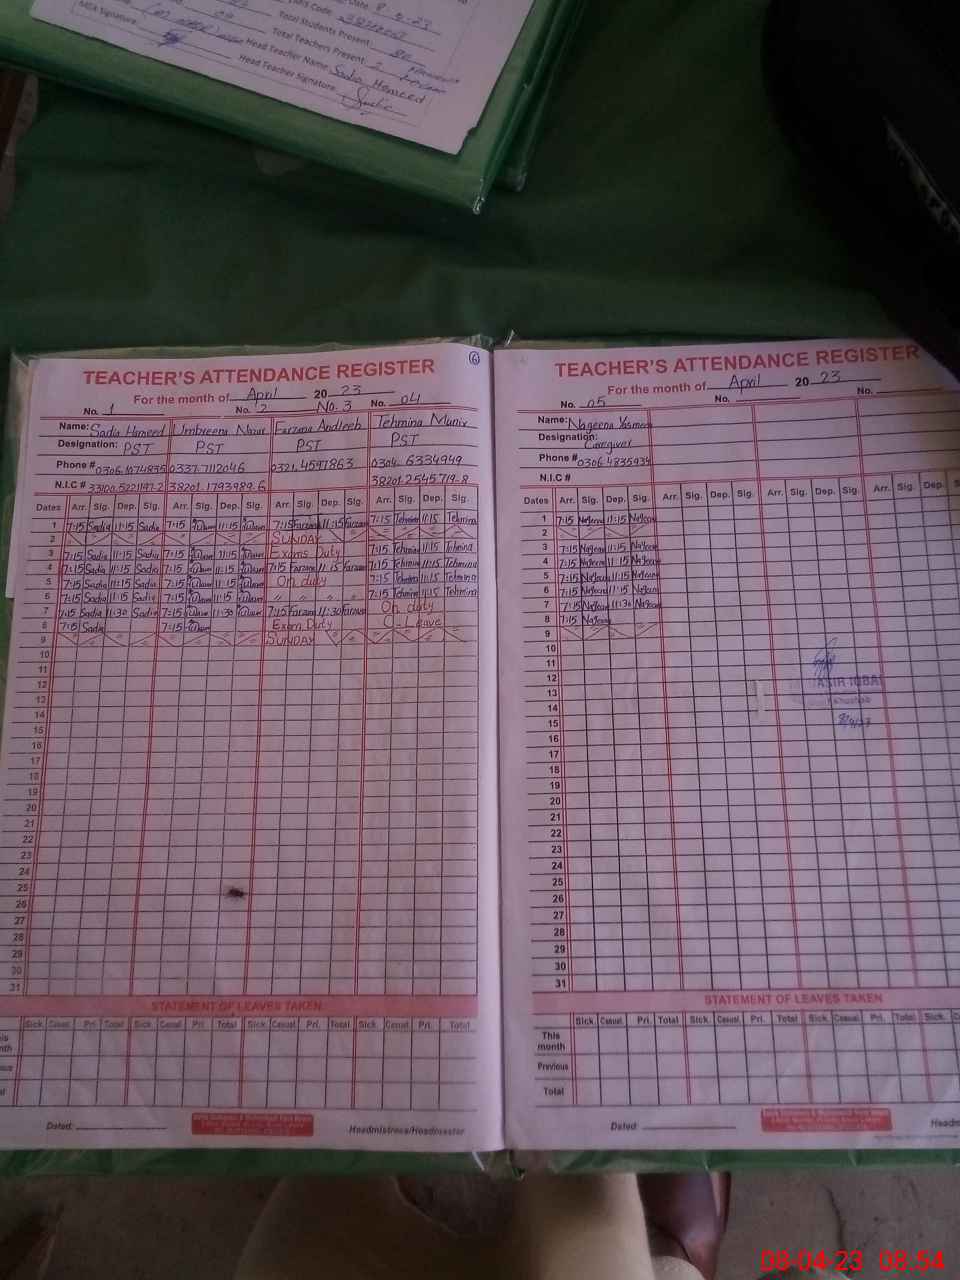 Date 8-4-23
EMIS Code: 38210057
Total Students Present:
Total Teachers Present: 2
MEA Signature:
Head Teacher Name: Sadia Hameed
Head Teacher Signature:
6
TEACHER'S ATTENDANCE REGISTER
For the month of April 20 23
No. 1 No. 2 No. 3 No. 04
Name: Sadia Hameed Umbreena Nazar Farzana Andleeb Tehmina Munir
Designation: PST PST PST PST
Phone # 0306.1074835 0337.7112046 0321.4597863 0304.6334949
N.I.C # 33100.5221197-2 38201.1793989.6 38201.2545719-8
Dates Arr. Sig. Dep. Sig. Arr. Sig. Dep. Sig. Arr. Sig. Dep. Sig. Arr. Sig. Dep. Sig.
1 7:15 Sadia 11:15 Sadia 7:15 11:15 7:15 Farzana 11:15 Farzana 7:15 Tehmina 11:15 Tehmina
2 SUNDAY
3 7:15 Sadia 11:15 Sadia 7:15 11:15 Exams Duty 7:15 Tehmina 11:15 Tehmina
4 7:15 Sadia 11:15 Sadia 7:15 11:15 7:15 Farzana 11:15 Farzana 7:15 Tehmina 11:15 Tehmina
5 7:15 Sadia 11:15 Sadia 7:15 11:15 On duty 7:15 Tehmina 11:15 Tehmina
6 7:15 Sadia 11:15 Sadia 7:15 11:15 " " " " 7:15 Tehmina 11:15 Tehmina
7 7:15 Sadia 11:30 Sadia 7:15 11:30 7:15 Farzana 11:30 Farzana On duty
8 7:15 Sadia 7:15 Exam Duty C-Leave
9 SUNDAY
10
11
12
13
14
15
16
17
18
19
20
21
22
23
24
25
26
27
28
29
30
31
STATEMENT OF LEAVES TAKEN
Sick. Casual. Pri. Total Sick. Casual. Pri. Total Sick. Casual. Pri. Total Sick. Casual. Pri. Total
Dated:
Headmistress/Headmaster
TEACHER'S ATTENDANCE REGISTER
For the month of April 20 23
No. 05 No. No.
Name: Nageena Yasmeen
Designation: Caregiver
Phone # 0306.4835934
N.I.C #
Dates Arr. Sig. Dep. Sig. Arr. Sig. Dep. Sig. Arr. Sig. Dep. Sig. Arr. Sig. Dep.
1 7:15 11:15
2
3 7:15 11:15
4 7:15 11:15
5 7:15 11:15
6 7:15 11:15
7 7:15 11:30
8 7:15
9
10
11
12
13
14
15
16
17
18
19
20
21
22
23
24
25
26
27
28
29
30
31
8/4/23
STATEMENT OF LEAVES TAKEN
Sick. Casual. Pri. Total Sick. Casual. Pri. Total Sick. Casual. Pri. Total Sick.
This month
Previous
Total
Dated:
08-04-23 08:54